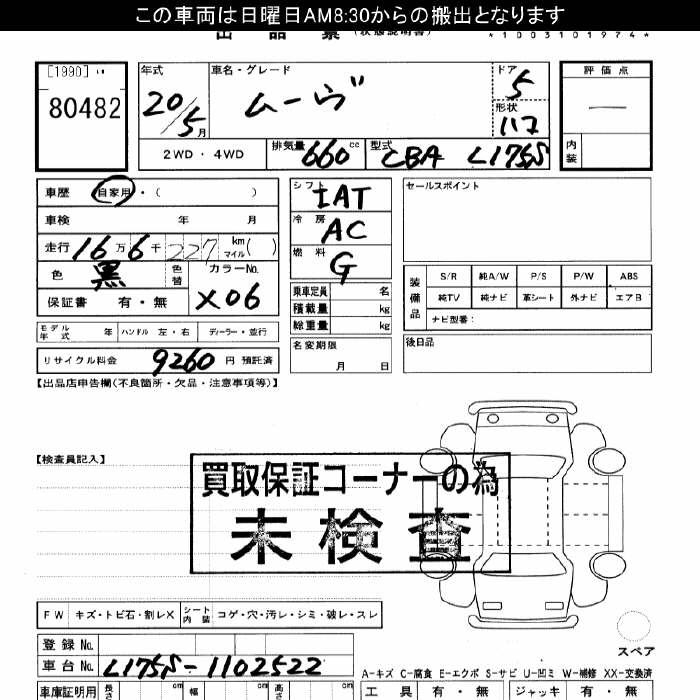 この車両は日曜日AM8:30からの搬出となります
出品票 (状態説明書) *1003101974*
[1990] 80482
年式 20/5月
車名・グレード ムーヴ
ドア 5
形状 ハコ
2WD ・ 4WD
排気量 660cc
型式 CBA L175S
評価点 ―
内装
車歴 自家用 ・ ( )
車検 年 月
走行 16万6千227 km マイル ( )
色 黒 色替 カラーNo. X06
保証書 有・無
モデル年式 年 ハンドル 左・右 ディーラー・並行
リサイクル料金 9260 円 預託済
シフト IAT
冷房 AC
燃料 G
乗車定員 名
積載量 kg
総重量 kg
名変期限 月 日
セールスポイント
装備品 S/R 純A/W P/S P/W ABS
純TV 純ナビ 革シート 外ナビ エアB
ナビ型番:
後日品
【出品店申告欄(不良箇所・欠品・注意事項等)】
【検査員記入】
買取保証コーナーの為
未検査
FW キズ・トビ石・割レX シート内装 コゲ・穴・汚レ・シミ・破レ・スレ
スペア
登録No.
車台No. L175S-1102522
A-キズ C-腐食 E-エクボ S-サビ U-凹ミ W-補修 XX-交換済
車庫証明用 長さ cm 幅 cm 高さ cm
工具 有・無 ジャッキ 有・無